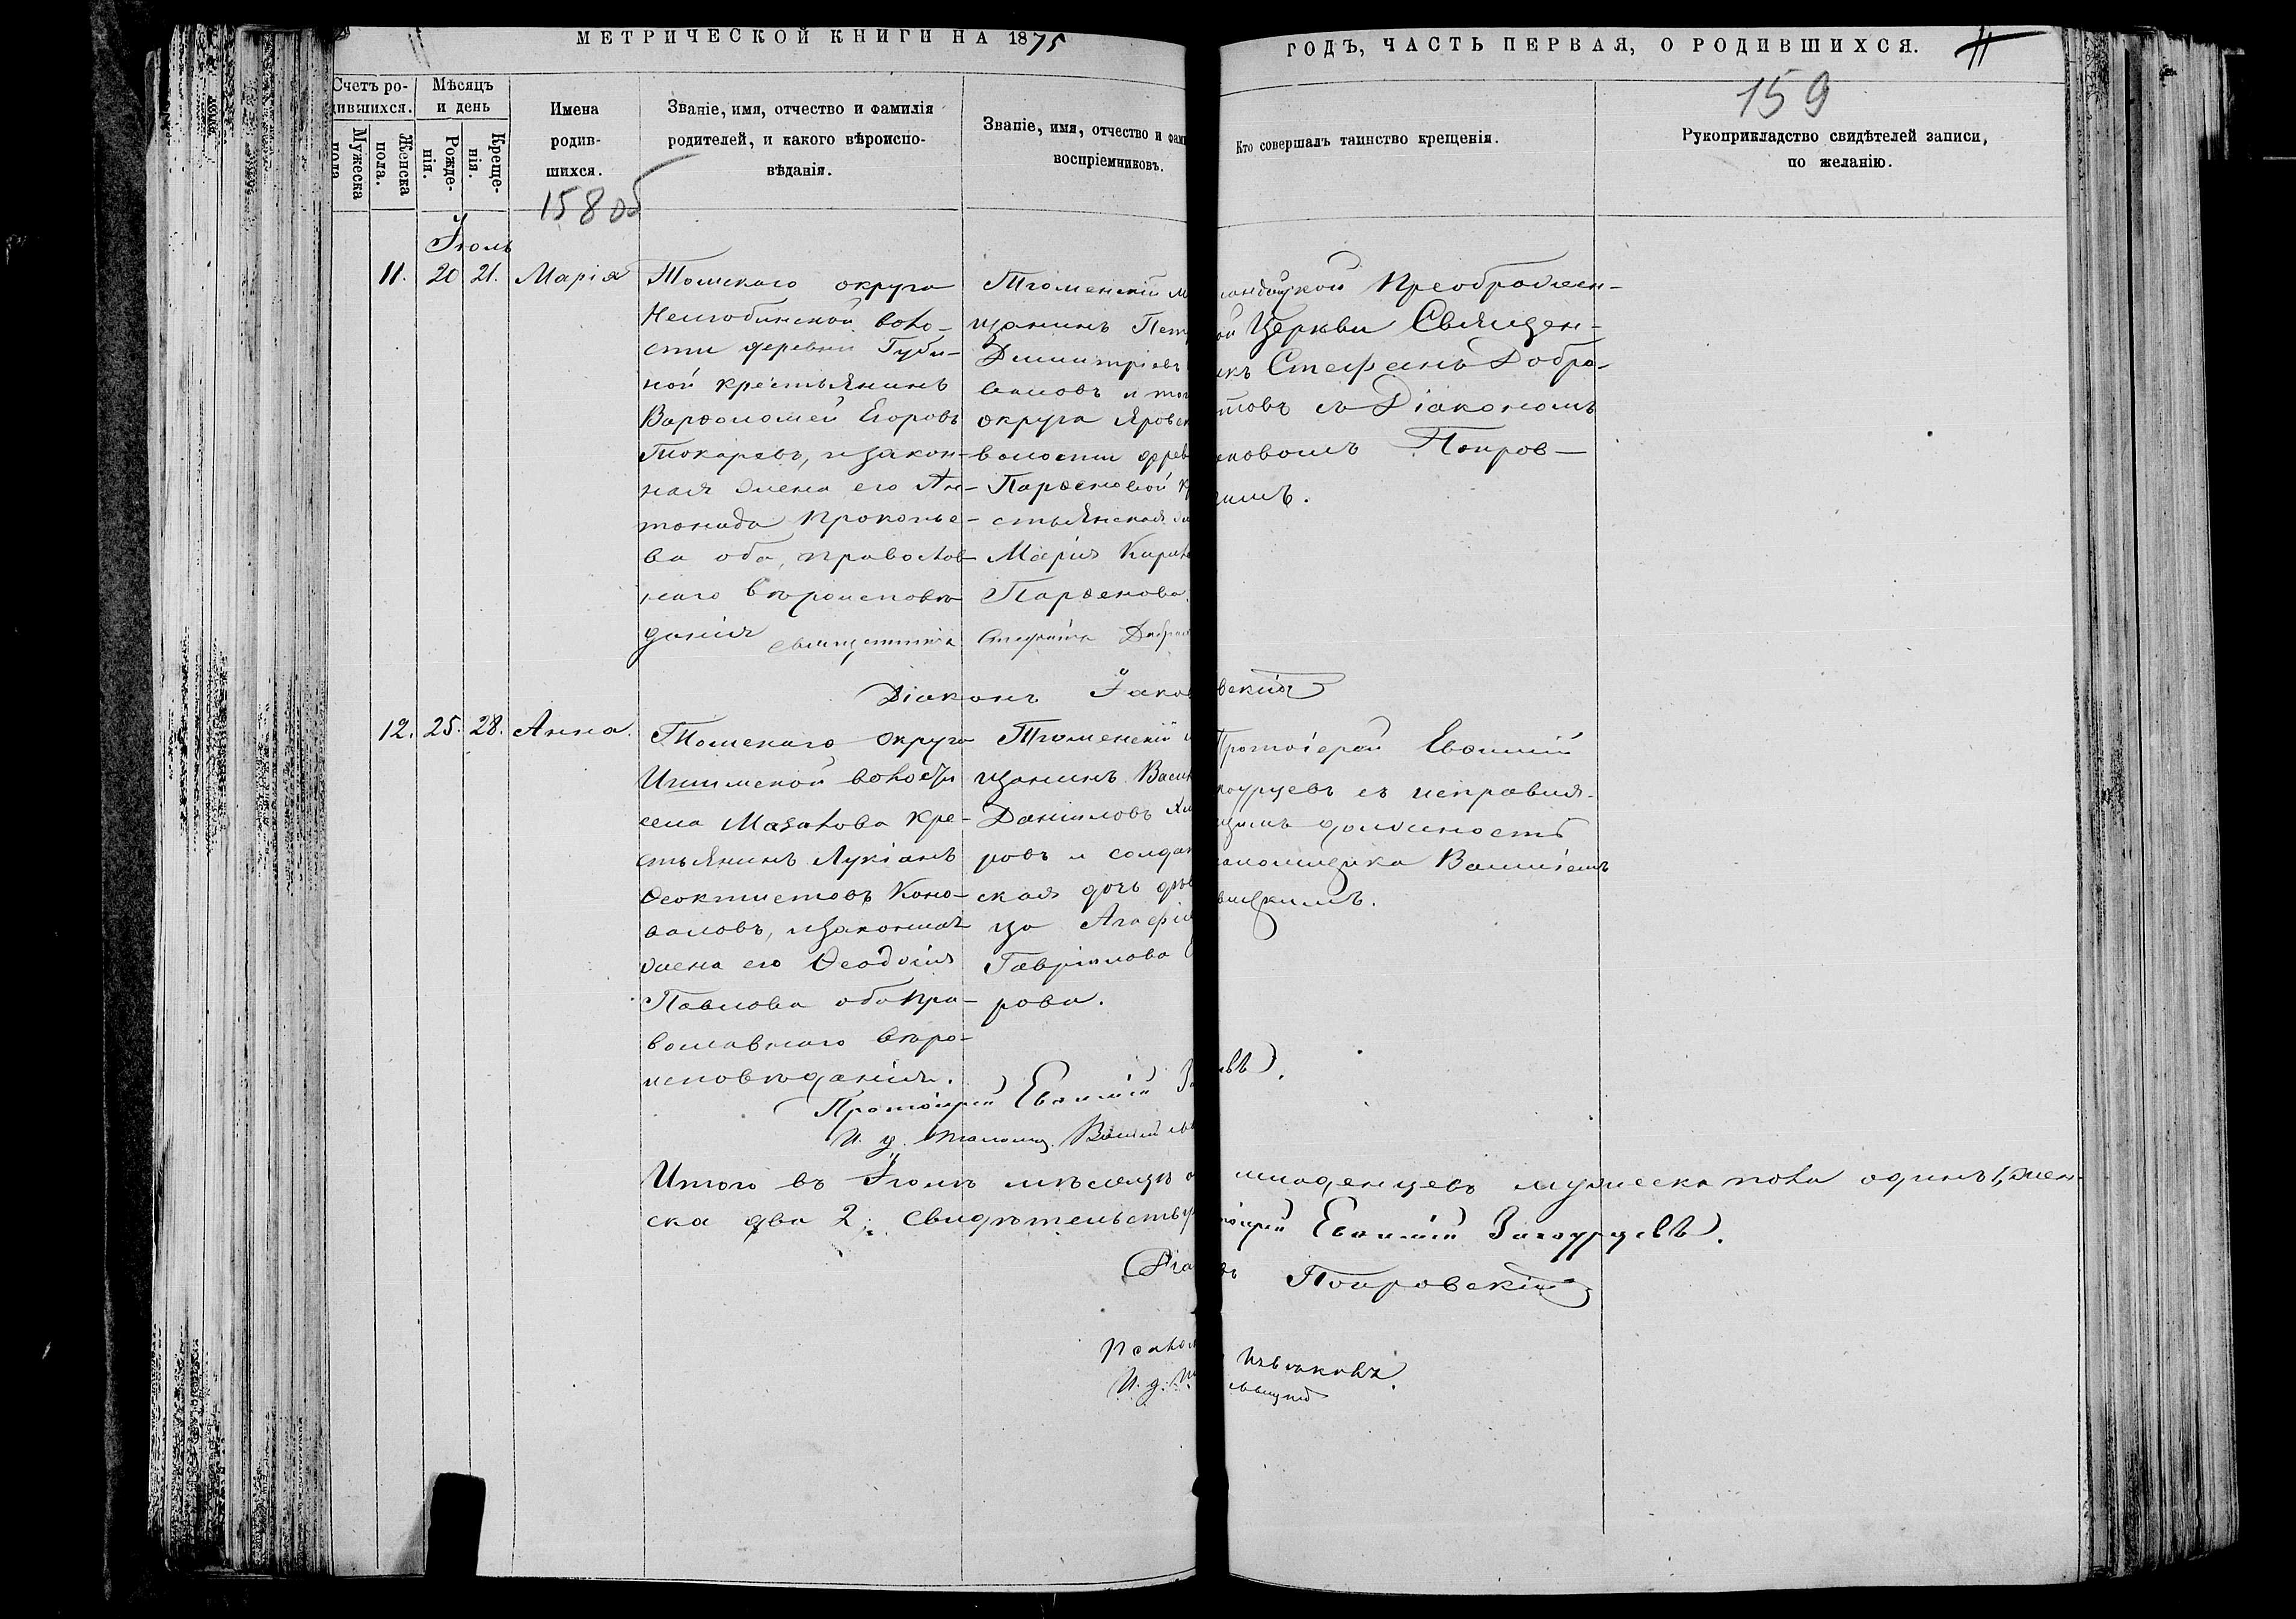 МЕТРИЧЕСКОЙ КНИГИ НА 1875
ГОДЪ, ЧАСТЬ ПЕРВАЯ, О РОДИВШИХСЯ.
11
159
Счетъ ро-
дившихся.
Мужеска
пола
Женска
пола.
Мѣсяцъ
и день
Рожде-
нія.
Креще-
нія.
Имена
родив-
шихся.
158 об
Званіе, имя, отчество и фамилія
родителей, и какого вѣроиспо-
вѣданія.
Званіе, имя, отчество и фами
воспріемниковъ.
Кто совершалъ таинство крещенія.
Рукоприкладство свидѣтелей записи,
по желанію.
Іюль
11. 20 21. Марія
Томскаго округа
Нелюбинской воло-
сти деревни Губи-
ной крестьянинъ
Варѳоломей Егоровъ
Токаревъ, и закон-
ная жена его Ан-
тонида Прокопье-
ва оба, православ-
наго вѣроисповѣ
данія
Тюменскій м
щанинъ Пет
Димитріевъ
и то
округа Яровск
волости дерев
Парѳеновой к
стьянская
Марія Кирил
Парѳенова.
Преображен-
ой Церкви Священ-
икъ Стефанъ Добро-
товъ съ Діакономъ
аковомъ Покров-
кимъ.
Священникъ Стефанъ Добро
Діаконъ Іаков
вскій
12. 25. 28. Анна.
Томскаго округа
Ишимской волости
села Мазалова кре-
стьянинъ Лукіанъ
Ѳеоктистовъ Коно-
валовъ, и законная
жена его Ѳеодосія
Павлова оба пра-
вославнаго вѣро-
исповѣданія.
Тюменскій м
щанинъ Васил
Даніиловъ
ровъ и солдат
ская дочь дѣв
ца Агафія
Гавріилова
рова.
Протоіерей Евѳимій
съ исправля-
щимъ должность
аломщика Василіемъ
Протоіерей Евѳимій За
евъ.
И. д. псаломщ. Василій
Итого въ Іюлѣ мѣсяцѣ
младенцевъ мужеска пола одинъ 1, жен-
ска два 2; Свидѣтельству
оіерей Евѳимій
Діа
въ Покровскій
Псалом
И. д.